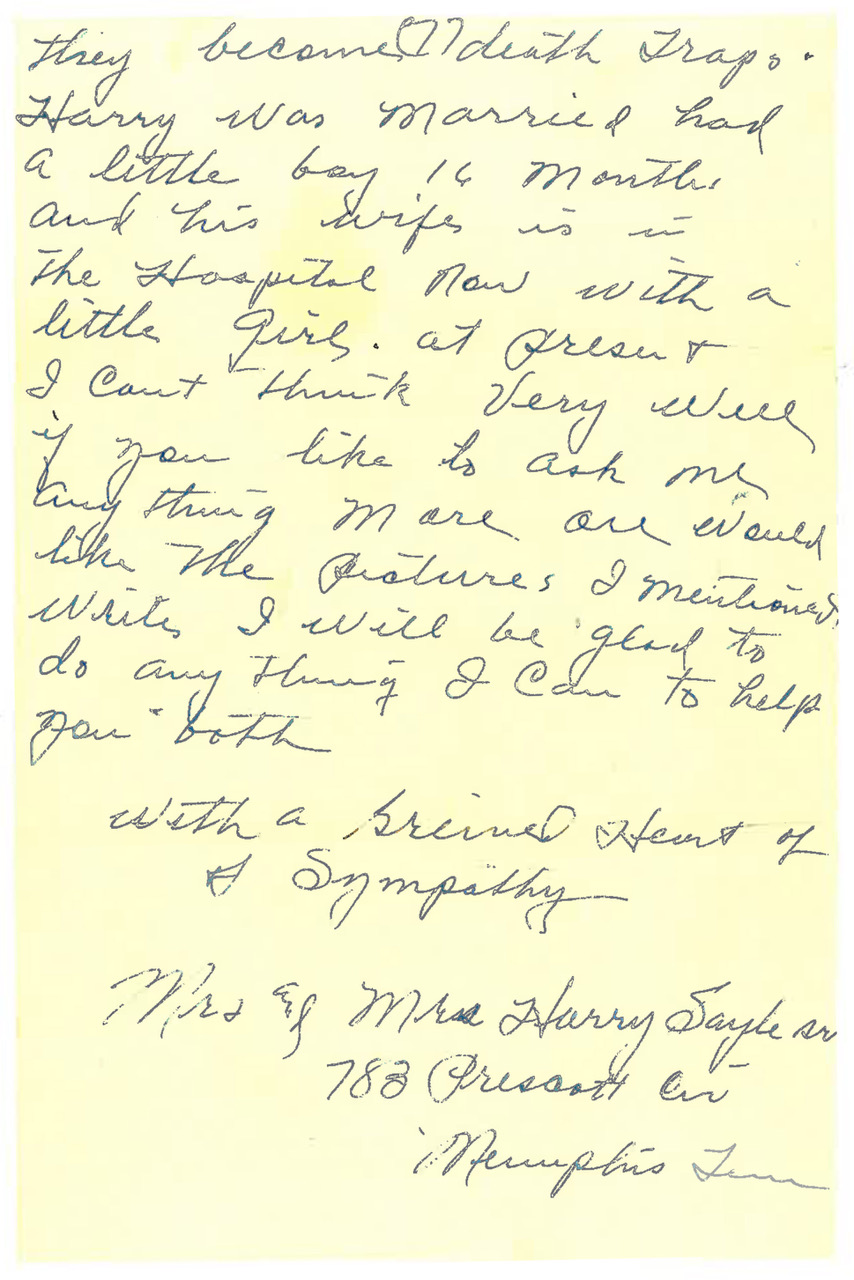 they become death Traps.
Harry was Married had
a little boy 16 Months
and his wife is in
the Hospital now with a
little Girl. at present
I Cant think Very Well
if you like to ask me
any thing More are would
like the pictures I mentioned.
Write, I will be glad to
do any thing I Can to help
you both
With a Greived Heart of
& Sympathy
Mrs & Mrs Harry Sayle sr
783 Prescott
Memphis Tenn